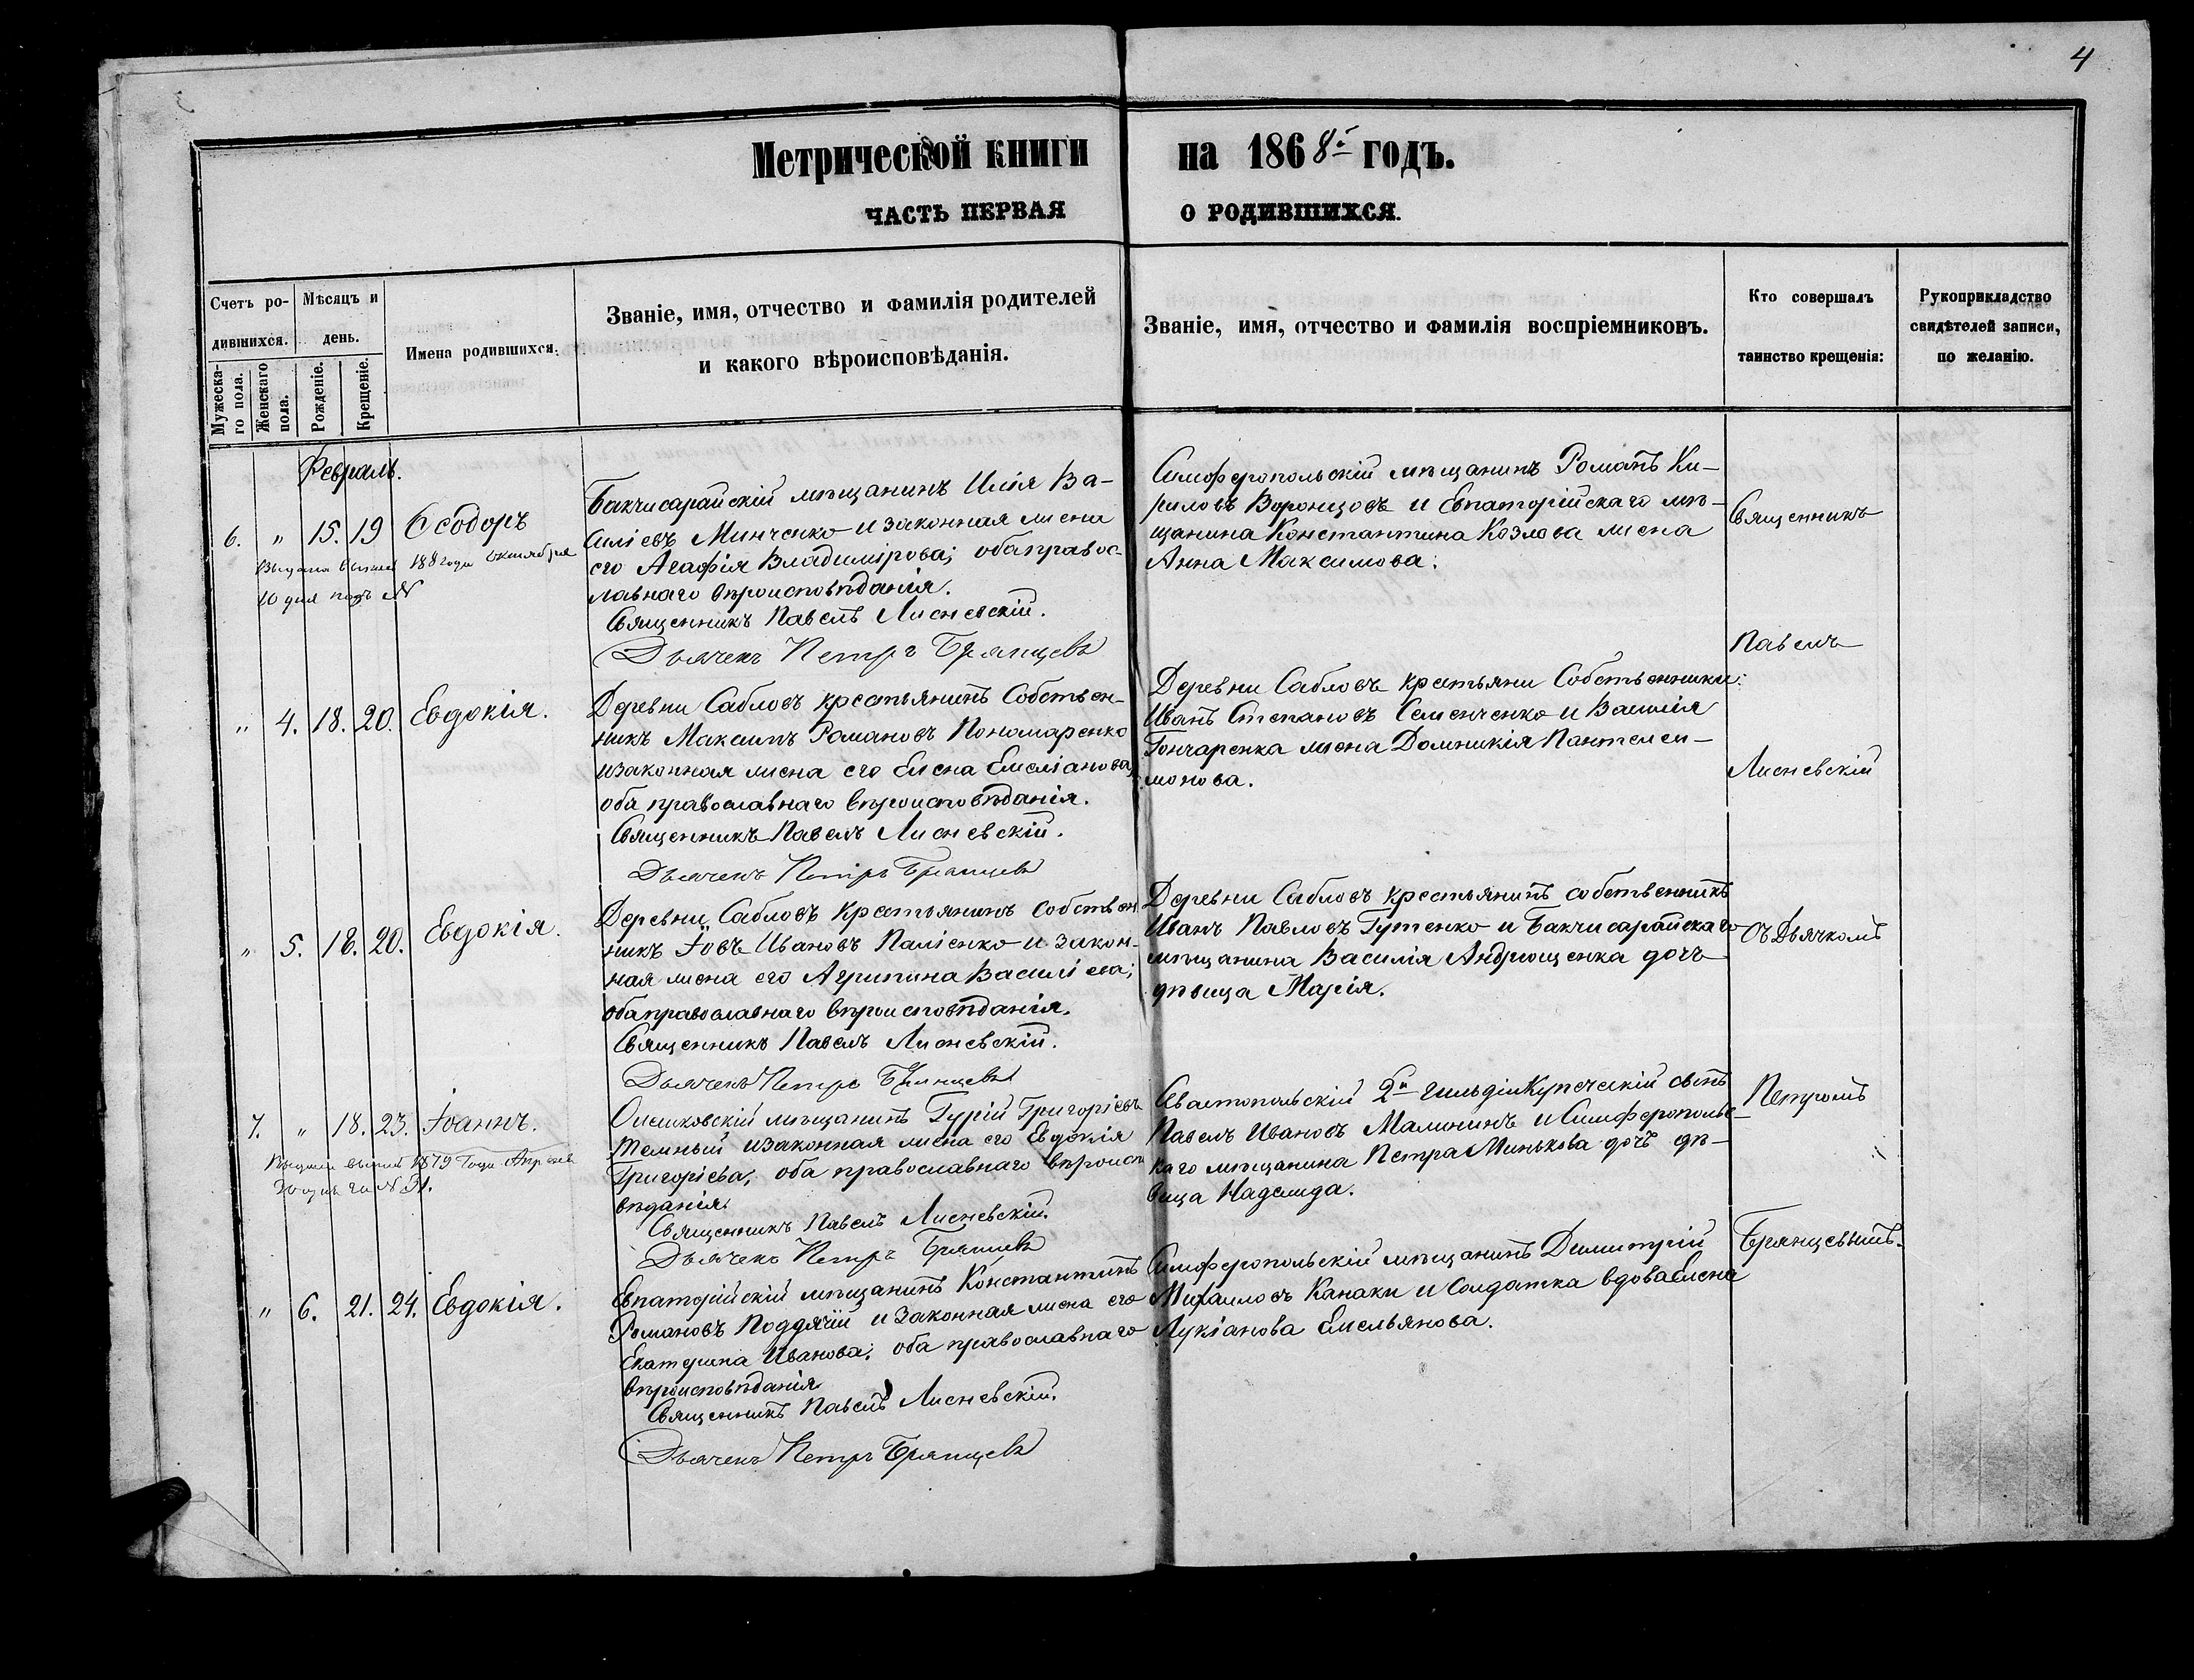 4
Метрической книги на 1868й годъ.
ЧАСТЬ ПЕРВАЯ О РОДИВШИХСЯ.
Счетъ ро-
дившихся.
Мужеска-
го пола.
Женскаго
пола.
Мѣсяцъ и
день.
Рожденіе.
Крещеніе.
Имена родившихся.
Званіе, имя, отчество и фамилія родителей
и какого вѣроисповѣданія.
Званіе, имя, отчество и фамилія воспріемниковъ.
Кто совершалъ
таинство крещенія:
Рукоприкладство
свидѣтелей записи,
по желанію.
Февраль.
6. " 15. 19 Ѳеодоръ
октября
10 дня подъ №
Бакчисарайскій мѣщанинъ Илія Ва-
силіевъ Минченко и законная жена
его Агафія Владимірова; оба правос-
лавнаго вѣроисповѣданія.
Священникъ Павелъ Лисневскій.
Дьячекъ Петръ Брянцевъ
Симферопольскій мѣщанинъ Романъ Ки-
риловъ Воронцовъ и Евпаторійскаго мѣ-
щанина Константина Козлова жена
Анна Максимова.
" 4. 18. 20. Евдокія.
Деревни Сабловъ крестьянинъ Собствен-
никъ Максимъ Романовъ Пономаренко
и законная жена его Елена Емеліанова,
оба православнаго вѣроисповѣданія.
Священникъ Павелъ Лисневскій.
Дьячекъ Петръ Брянцевъ
Деревни Сабловъ крестьяни Собственники:
Иванъ Степановъ Семенченко и Василія
Гончаренка жена Домникія Пантелеи-
монова.
" 5. 18. 20. Евдокія.
Деревни Сабловъ крестьянинъ собствен
никъ Іовъ Ивановъ Паліенко и закон-
ная жена его Агрипина Василіева;
оба православнаго вѣроисповѣданія.
Священникъ Павелъ Лисневскій.
Дьячекъ Петръ Брянцевъ
Деревни Сабловъ крестьянинъ собственникъ
Иванъ Павловъ Гутенко и Бакчисарайскаго
мѣщанина Василія Андрющенка дочь
дѣвица Марія.
7. " 18. 23. Іоаннъ.
1879 года Апрѣля
Олешковскій мѣщанинъ Гурій Григоріевъ
Темный и законная жена его Евдокія
Григоріева, оба православнаго вѣроиспо
вѣданія.
Священникъ Павелъ Лисневскій.
Дьячекъ Петръ Брянцевъ
Севастопольскій 2й гильдіи Купеческій сынъ
Павелъ Ивановъ Малининъ и Симферопольс-
каго мѣщанина Петра Минькова дочь дѣ-
вица Надежда.
" 6. 21. 24. Евдокія.
Евпаторійскій мѣщанинъ Константинъ
Романовъ Поддячій и законная жена его
Екатерина Иванова; оба православнаго
вѣроисповѣданія
Священникъ Павелъ Лисневскій.
Дьячекъ Петръ Брянцевъ
Симферопольскій мѣщанинъ Димитрій
Михаиловъ Канаки и Солдатка вдова Елена
Лукіанова Емельянова.
Священникъ
Павелъ
Лисневскій
Съ Дьячкомъ
Петромъ
Брянцевымъ.